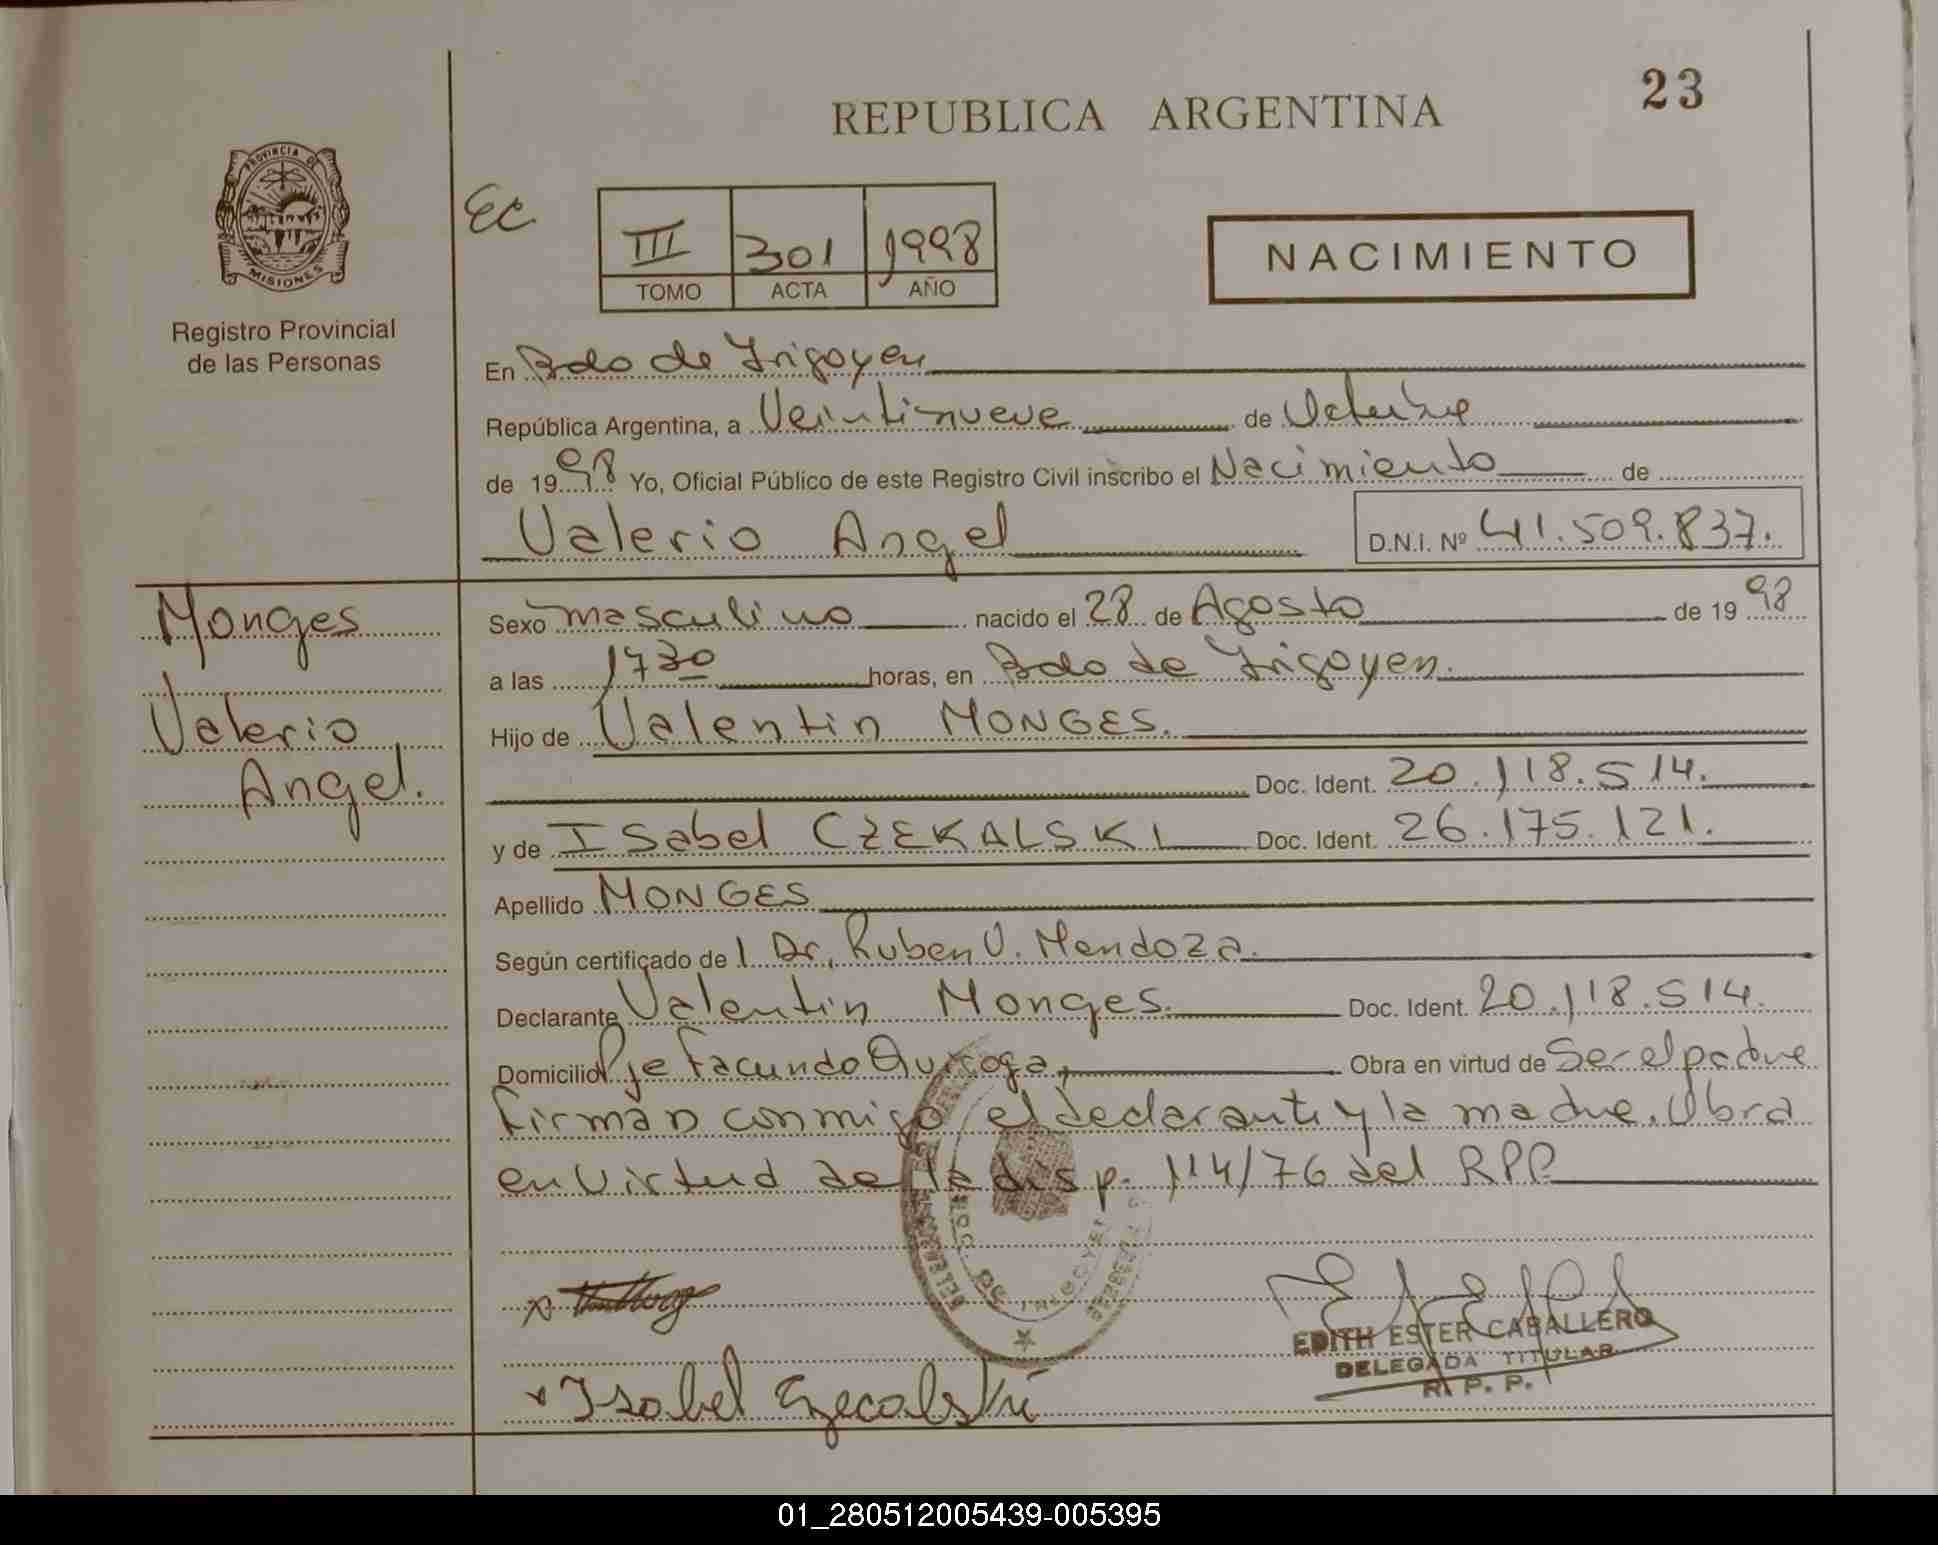 23
REPUBLICA ARGENTINA
PROVINCIA DE
MISIONES
Registro Provincial
de las Personas
EC
III 301 1998
TOMO ACTA AÑO
NACIMIENTO
En Bdo de Irigoyen
República Argentina, a Veintinueve de Octubre
de 1998 Yo, Oficial Público de este Registro Civil inscribo el Nacimiento de
Valerio Angel D.N.I. Nº 41.509.837.
Monges
Valerio
Angel.
Sexo masculino nacido el 28 de Agosto de 1998
a las 1730 horas, en Bdo de Irigoyen.
Hijo de Valentin MONGES.
Doc. Ident. 20.118.514.
y de Isabel CZEKALSKI Doc. Ident. 26.175.121.
Apellido MONGES
Según certificado del Dr. Ruben V. Mendoza.
Declarante Valentin Monges. Doc. Ident. 20.118.514.
Domicilio Pje Facundo Quiroga, Obra en virtud de Ser el padre
Firman conmigo el declarante y la madre. Obra
en virtud de la disp. 114/76 del RPP
x
x Isabel
EDITH ESTER CABALLERO
DELEGADA TITULAR
R. P. P.
01_280512005439-005395